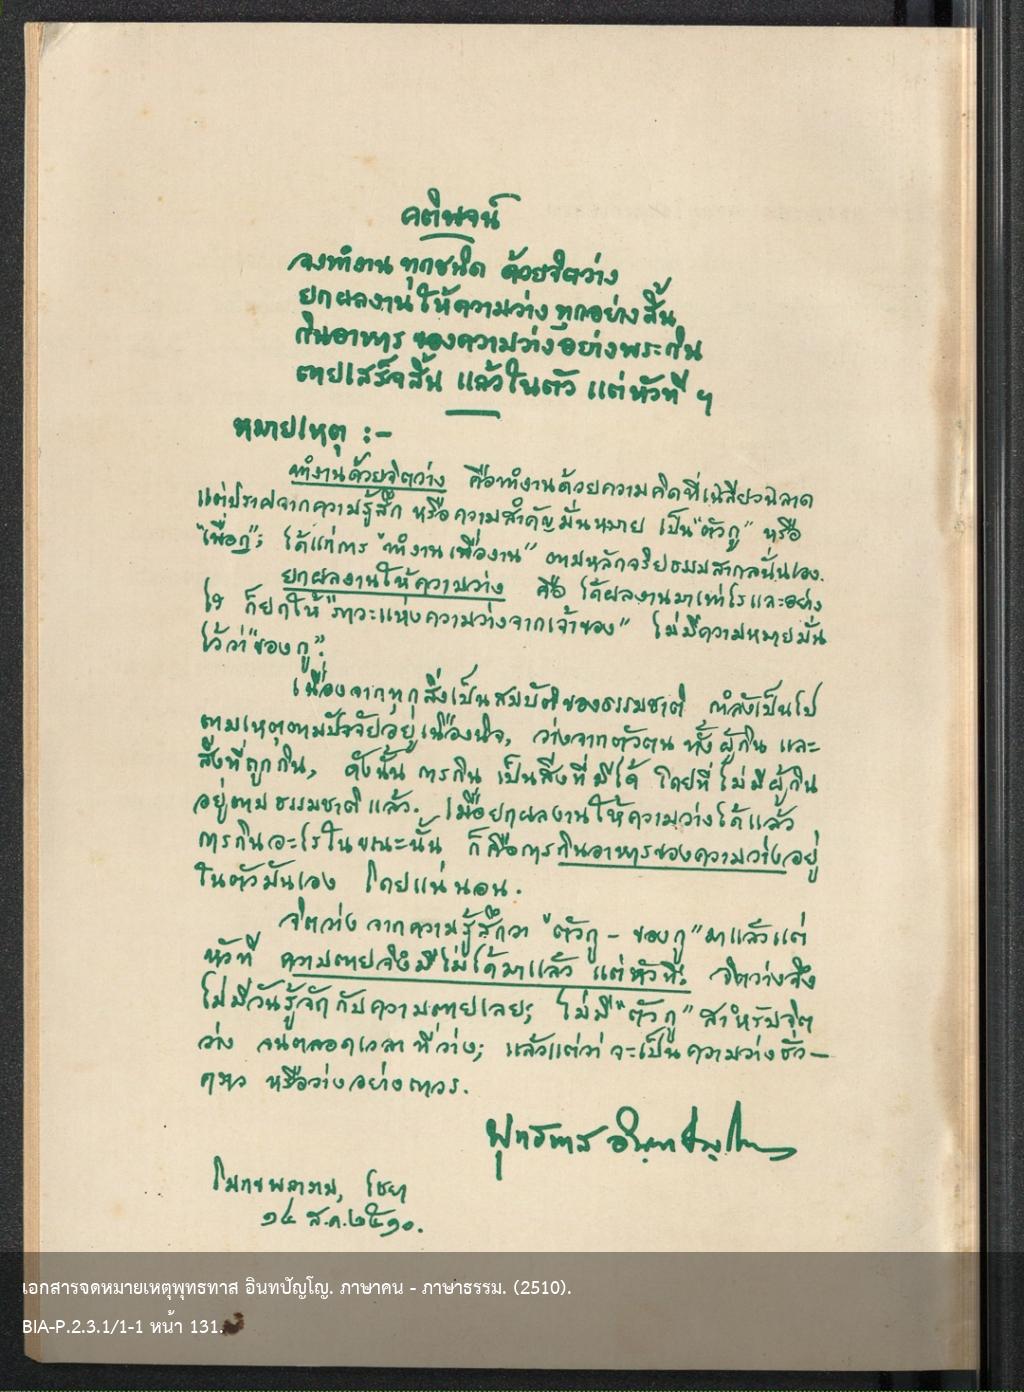 คติพจน์
จงทำงาน ทุกชนิด ด้วยจิตว่าง
ยกผลงานให้ความว่าง ทุกอย่างสิ้น
กินอาหาร ของความว่าง อย่างพระกิน
ตายเสร็จสิ้น แล้วในตัว แต่หัวที ฯ
หมายเหตุ :-
ทำงานด้วยจิตว่าง คือทำงานด้วยความคิดที่เฉลียวฉลาด
แต่ปราศจากความรู้สึก หรือความสำคัญมั่นหมาย เป็น "ตัวกู" หรือ
"เพื่อกู"; ได้แก่การ "ทำงานเพื่องาน" ตามหลักจริยธรรมสากลนั่นเอง.
ยกผลงานให้ความว่าง คือ ได้ผลงานมาเท่าไรและอย่าง
ไร ก็ยกให้ "ภาวะแห่งความว่างจากเจ้าของ" ไม่มีความหมายมั่น
ไว้ว่า "ของกู".
เนื่องจากทุกสิ่งเป็นสมบัติของธรรมชาติ กำลังเป็นไป
ตามเหตุตามปัจจัยอยู่เนืองนิจ, ว่างจากตัวตน ทั้งผู้กิน และ
สิ่งที่ถูกกิน, ดังนั้น การกิน เป็นสิ่งที่มีได้ โดยที่ไม่มีผู้กิน
อยู่ตามธรรมชาติแล้ว. เมื่อยกผลงานให้ความว่างได้แล้ว
การกินอะไรในขณะนั้น ก็คือการกินอาหารของความว่างอยู่
ในตัวมันเอง โดยแน่นอน.
จิตว่าง จากความรู้สึกว่า "ตัวกู - ของกู" มาแล้วแต่
หัวที ความตายจึงมีไม่ได้มาแล้ว แต่หัวที: จิตว่างจึง
ไม่มีวันรู้จักกับความตายเลย; ไม่มี "ตัวกู" สำหรับจิต
ว่าง จนตลอดเวลาที่ว่าง; แล้วแต่ว่า จะเป็นความว่างชั่ว-
คราว หรือว่างอย่างถาวร.
พุทธทาส อินทปัญโญ
โมกขพลาราม, ไชยา
๑๔ ส.ค. ๒๕๑๐.
เอกสารจดหมายเหตุพุทธทาส อินทปัญโญ. ภาษาคน - ภาษาธรรม. (2510).
BIA-P.2.3.1/1-1 หน้า 131.